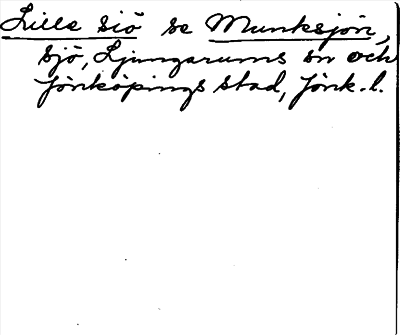 Lille siö se Munksjön,
sjö, Ljungarums sn och
Jönköpings stad, Jönk. l.